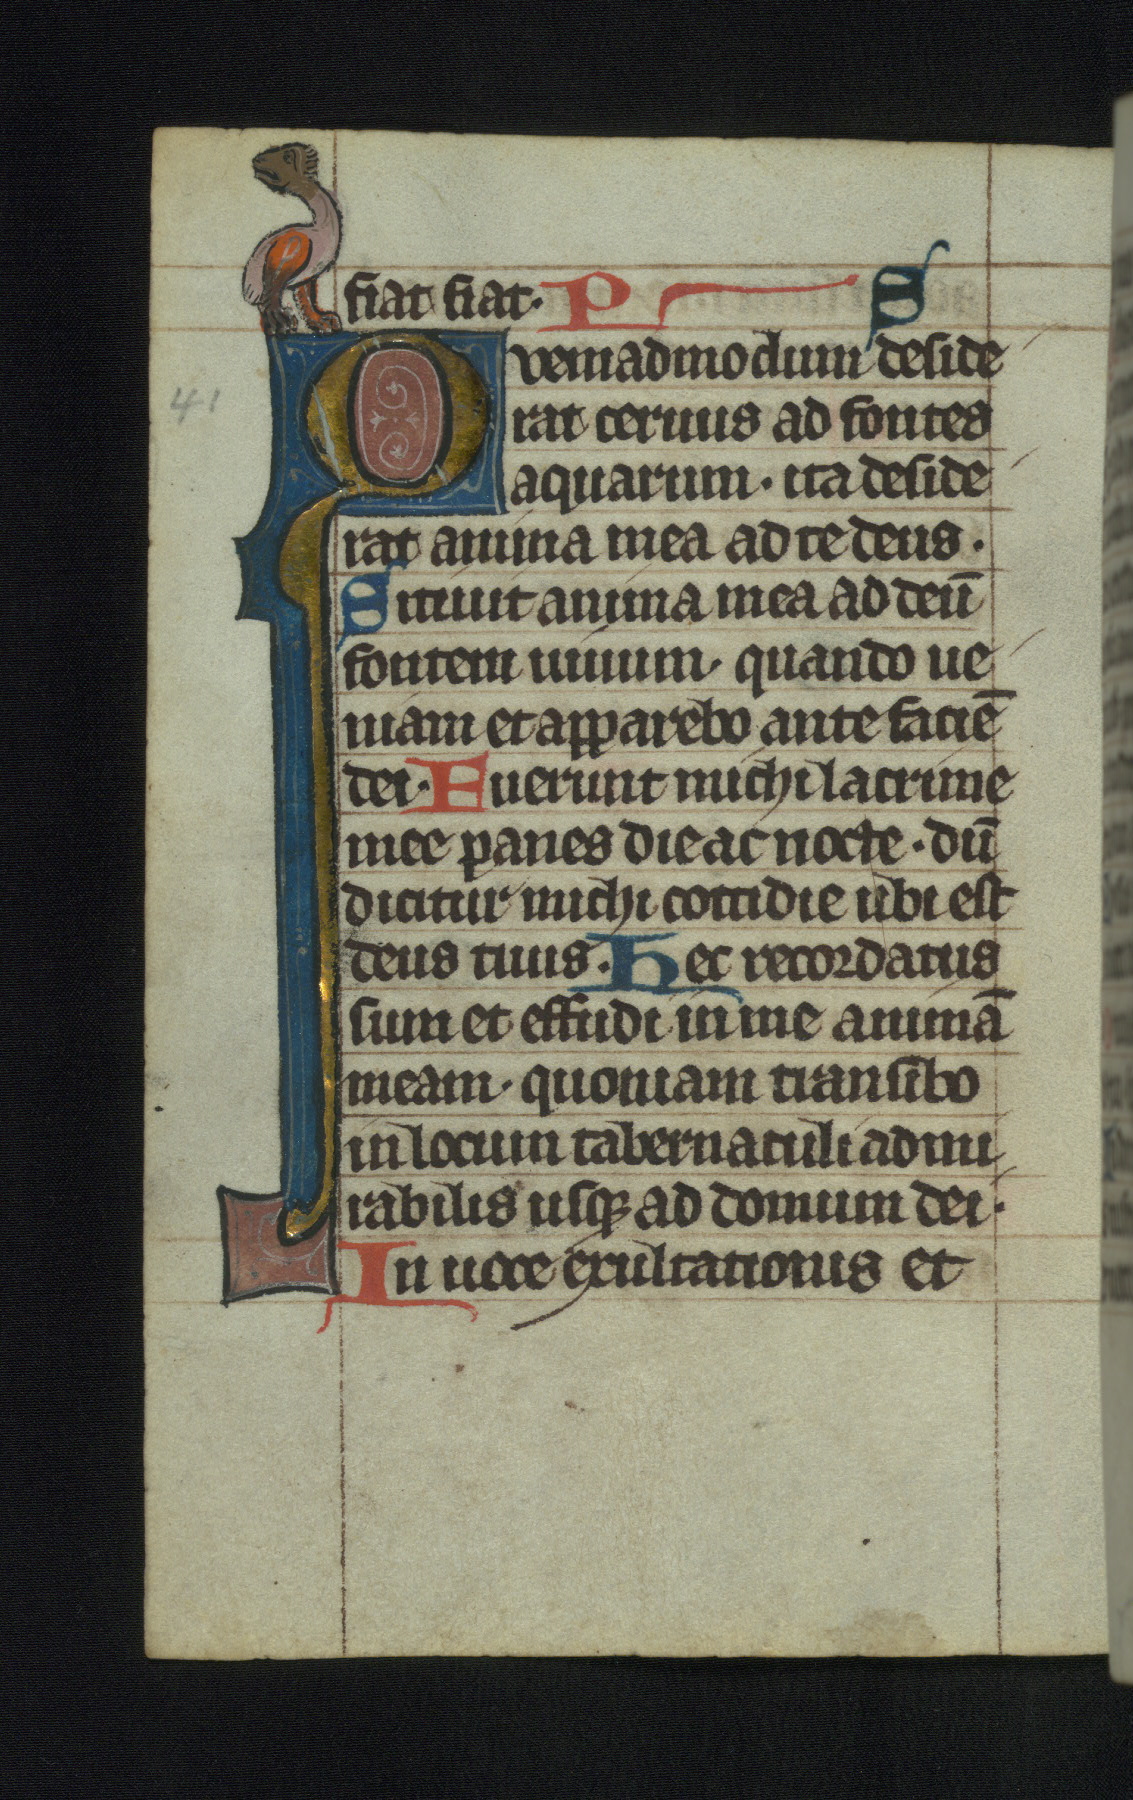 fiat fiat. P S
Quemadmodum deside
rat ceruus ad fontes
aquarum. ita deside
rat anima mea ad te deus.
Sitiuit anima mea ad deū
fontem uiuum. quando ue
niam et apparebo ante faciē
dei. Fuerunt michi lacrime
mee panes die ac nocte. dū
dicitur michi cottidie ubi est
deus tuus. Hec recordatus
sum et effudi in me animā
meam. quoniam transibo
in locum tabernaculi admi
rabilis usqꝫ ad domum dei.
In uoce exultationis et
41